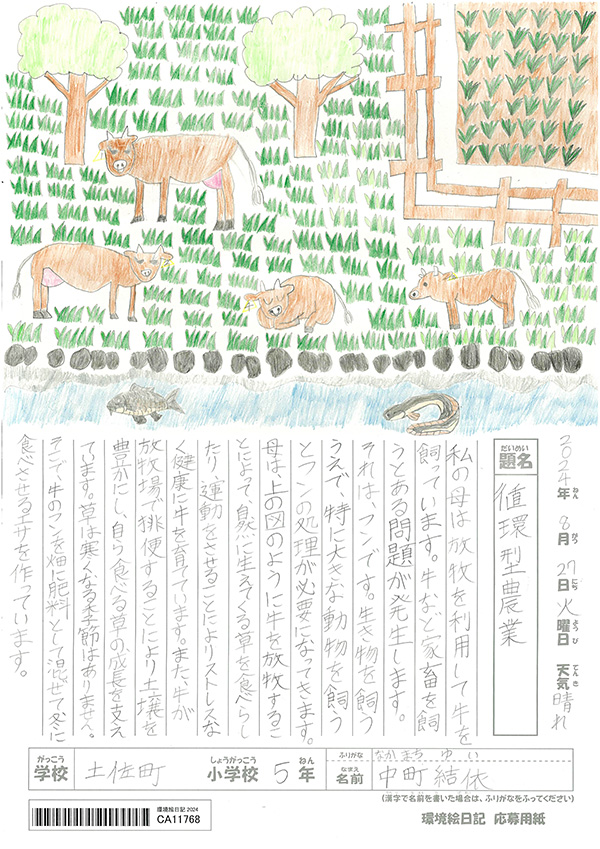 2024年ねん 8月がつ 27日にち 火曜日ようび 天気てんき 晴れ
だいめい
題名 循環型農業
私の母は放牧を利用して牛を
飼っています。牛など家畜を飼
うとある問題が発生します。
それは、フンです。生き物を飼う
うえで、特に大きな動物を飼う
とフンの処理が必要になってきます。
母は、上の図のように牛を放牧するこ
とによって、自然に生えてくる草を食べらし
たり、運動をさせることによりストレスな
く健康に牛を育てています。また、牛が
放牧場で排便することにより土壌を
豊かにし、自ら食べる草の成長を支え
ています。草は寒くなる季節はありません。
そこで、牛のフンを畑に肥料として混ぜて冬に
食べさせるエサを作っています。
がっこう しょうがっこう ねん
学校 土佐町 小学校 5年
ふりがな なかまち ゆい
なまえ
名前 中町結依
(漢字で名前を書いた場合は、ふりがなをふってください)
環境絵日記 2024
CA11768
環境絵日記 応募用紙